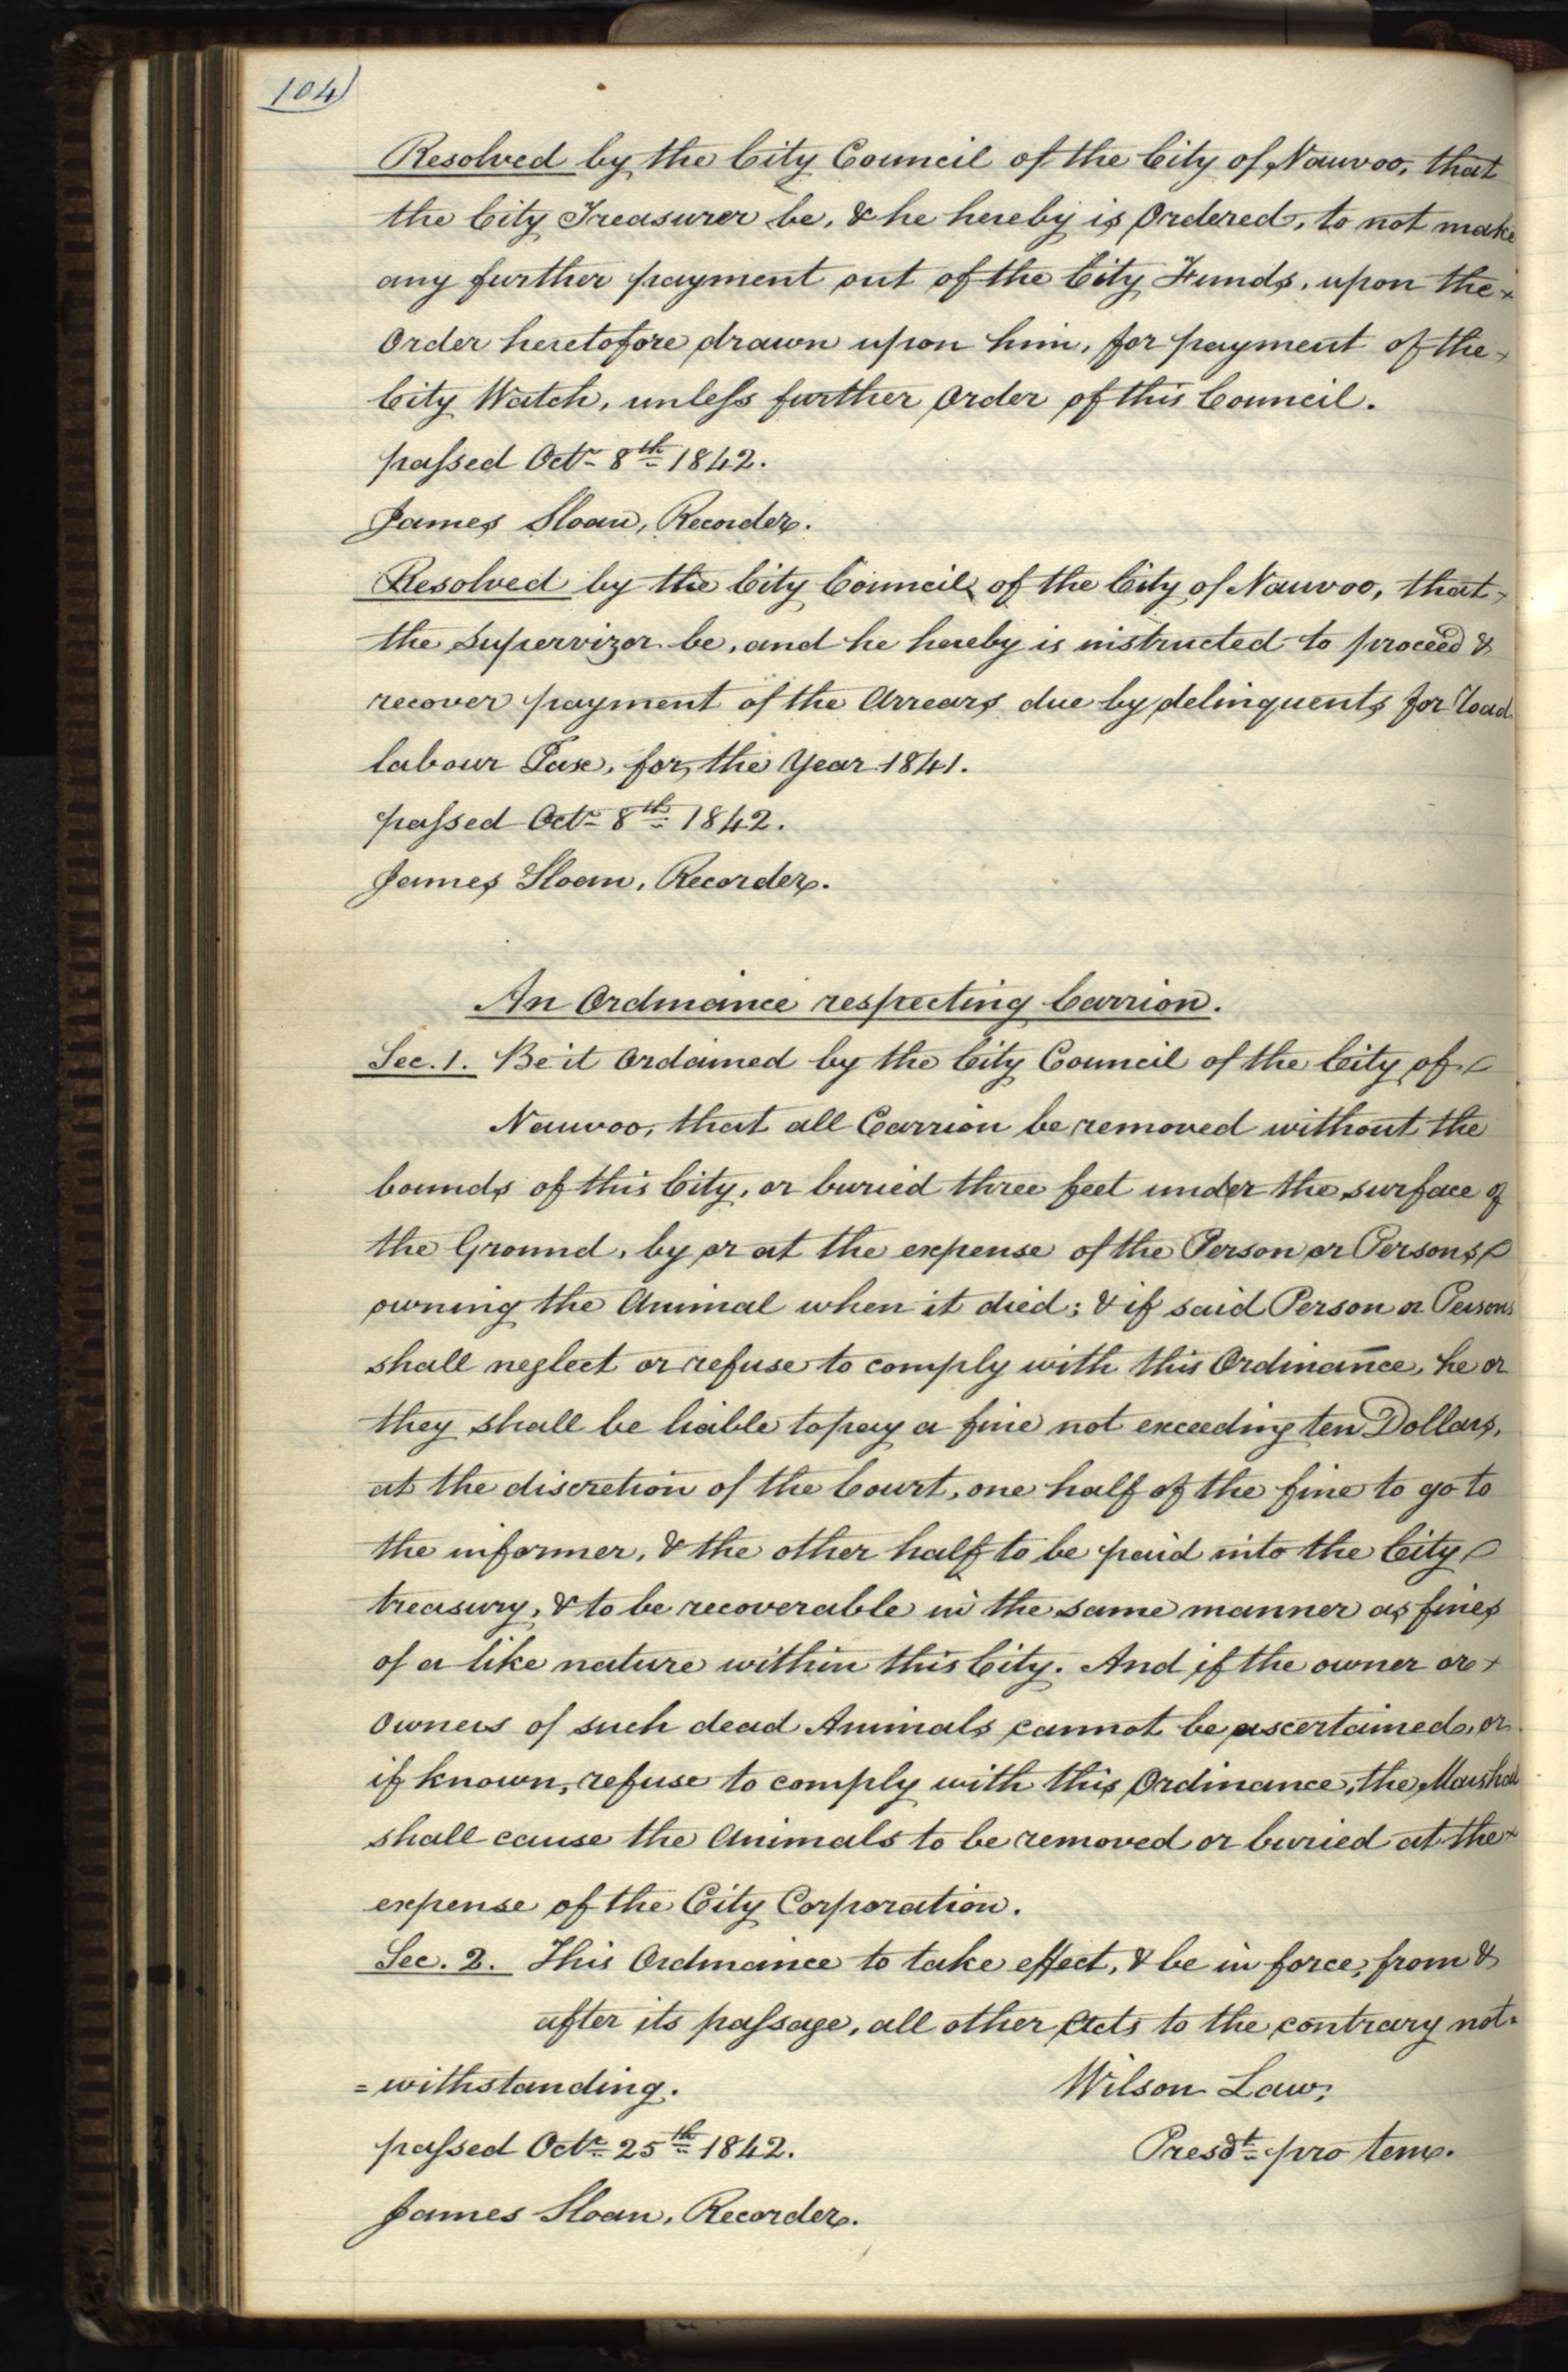 104)
Resolved by the City Council of the City of Nauvoo, that
the City Treasurer be, & he hereby is Ordered, to not make
any further payment out of the City Funds, upon the
Order heretofore drawn upon him, for payment of the
City Watch, unless further Order of this Council.
passed Octr. 8th. 1842.
James Sloan, Recorder.
Resolved by the City Council of the City of Nauvoo, that
the Supervizor be, and he hereby is instructed to proceed &
recover payment of the Arrears due by delinquents for Road
labour Tax, for the Year 1841.
passed Octr. 8th. 1842.
James Sloan, Recorder.
An Ordinance respecting Carrion.
Sec. 1. Be it Ordained by the City Council of the City of
Nauvoo, that all Carrion be removed without the
bounds of this City, or buried three feet under the surface of
the Ground, by or at the expense of the Person or Persons
owning the Animal when it died; & if said Person or Persons
shall neglect or refuse to comply with this Ordinance, he or
they shall be liable to pay a fine not exceeding ten Dollars,
at the discretion of the Court, one half of the fine to go to
the informer, & the other half to be paid into the City
treasury, & to be recoverable in the same manner as fines
of a like nature within this City. And if the owner or
Owners of such dead Animals cannot be ascertained, or
if known, refuse to comply with this Ordinance, the Marshal
shall cause the Animals to be removed or buried at the
expense of the City Corporation.
Sec. 2. This Ordinance to take effect, & be in force, from &
after its passage, all other Acts to the contrary not=
=withstanding. Wilson Law,
passed Octr. 25th. 1842. Presdt. pro tem.
James Sloan, Recorder.